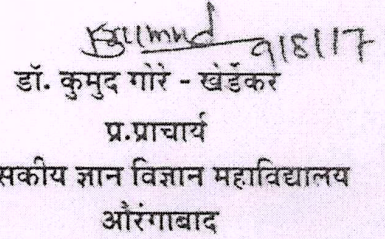 9/8/17
डॉ. कुमुद गोरे - खेर्डेकर
प्र.प्राचार्य
सकीय ज्ञान विज्ञान महाविद्यालय
औरंगाबाद